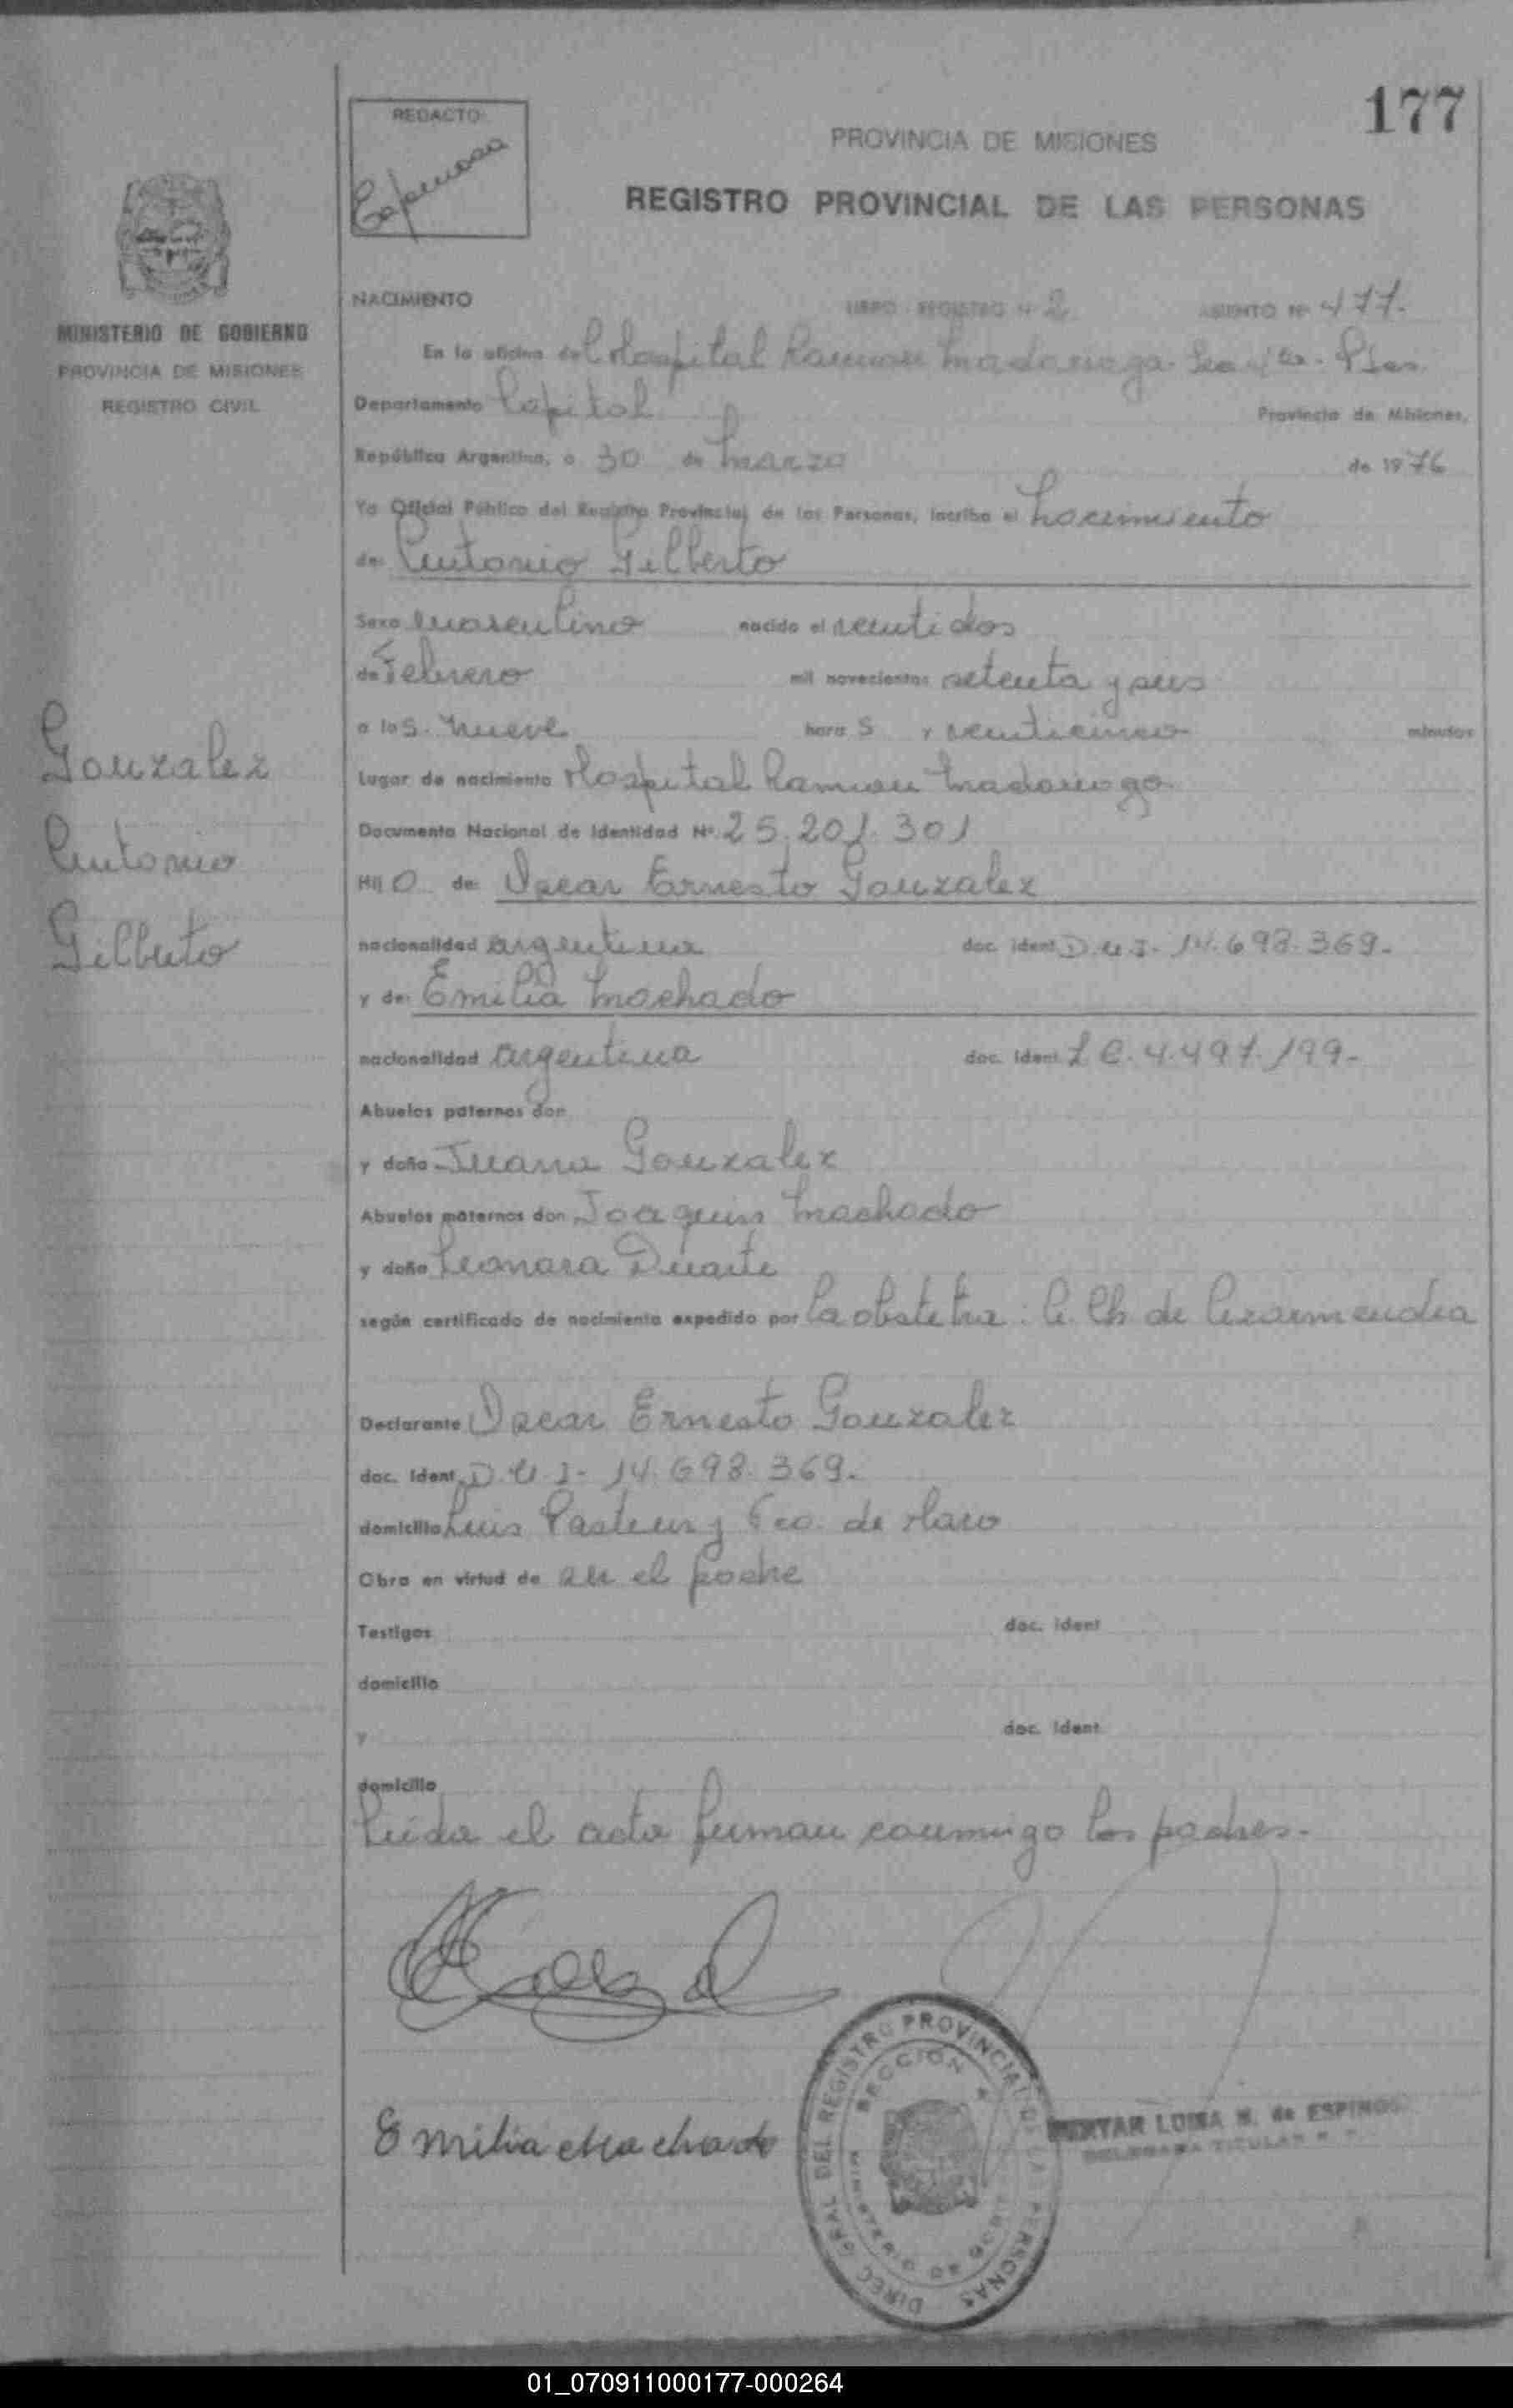 177
REDACTO
Espinosa
PROVINCIA DE MISIONES
REGISTRO PROVINCIAL DE LAS PERSONAS
MINISTERIO DE GOBIERNO
PROVINCIA DE MISIONES
REGISTRO CIVIL
Gonzalez
Antonio
Gilberto
NACIMIENTO LIBRO - REGISTRO Nº 2 ASIENTO Nº 477.
En la oficina del Hospital Ramon Madariaga
Departamento Capital Provincia de Misiones,
República Argentina, a 30 de Marzo de 1976
Yo Oficial Público del Registro Provincial de las Personas, inscribo el Nacimiento
de: Antonio Gilberto
Sexo Masculino nacido el veintidos
de Febrero mil novecientos setenta y seis
a las. Nueve hora s y veinticinco minutos
Lugar de nacimiento Hospital Ramon Madariaga
Documento Nacional de Identidad Nº 25.201.301
Hijo de: Oscar Ernesto Gonzalez
nacionalidad argentina doc. ident. D.N.I- 14.698.369.-
y de: Emilia Machado
nacionalidad argentina doc. ident. L C. 4.497.199-
Abuelos paternos don
y doña Juana Gonzalez
Abuelos maternos don Joaquin Machado
y doña Leonara Duarte
según certificado de nacimiento expedido por la obstetra: C. Ch de
Declarante Oscar Ernesto Gonzalez
doc. ident. D.N.I- 14.698.369.
domicilio Luis Pasteur y Fco. de Haro
Obra en virtud de ser el padre
Testigos doc. ident
domicilio
y doc. ident.
domicilio
Leida el acta firman conmigo los padres.-
Emilia Machado
DIREC. GRAL. DEL REGISTRO PROVINCIAL DE LAS PERSONAS
SECCION
MINISTERIO DE GOBIERNO
LUISA N. de ESPINOSA
DELEGADA TITULAR
01_070911000177-000264